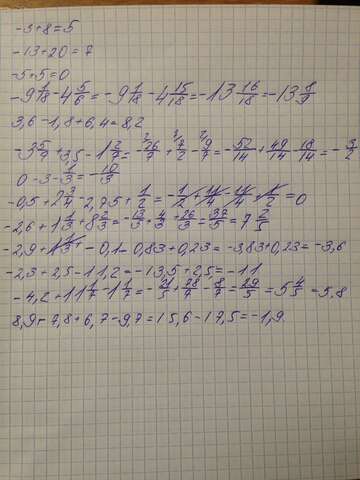 -3+8=5
-13+20=7
-5+5=0
-9 1/18-4 5/6=-9 1/18-4 15/18=-13 16/18=-13 8/9
3,6-1,8+6,4=8,2
-3 5/7+3,5-1 2/7=-26/7+7/2-9/7=-52/14+49/14-18/14=-3/2
0-3-1/3=-10/3
-0,5+2 3/4-2,75+1/2=-1/2+11/4-11/4+1/2=0
-2,6+1 1/3+8 2/3=-13/5+4/3+26/3=37/5=7 2/5
-0,1-0,83+0,23=-3,83+0,23=-3,6
-2,3+2,5-11,2=-13,5+2,5=-11
-4,2+11 1/7-1 1/7=-21/5+78/7-8/7=29/5=5 4/5=5,8
8,9-7,8+6,7-9,7=15,6-17,5=-1,9